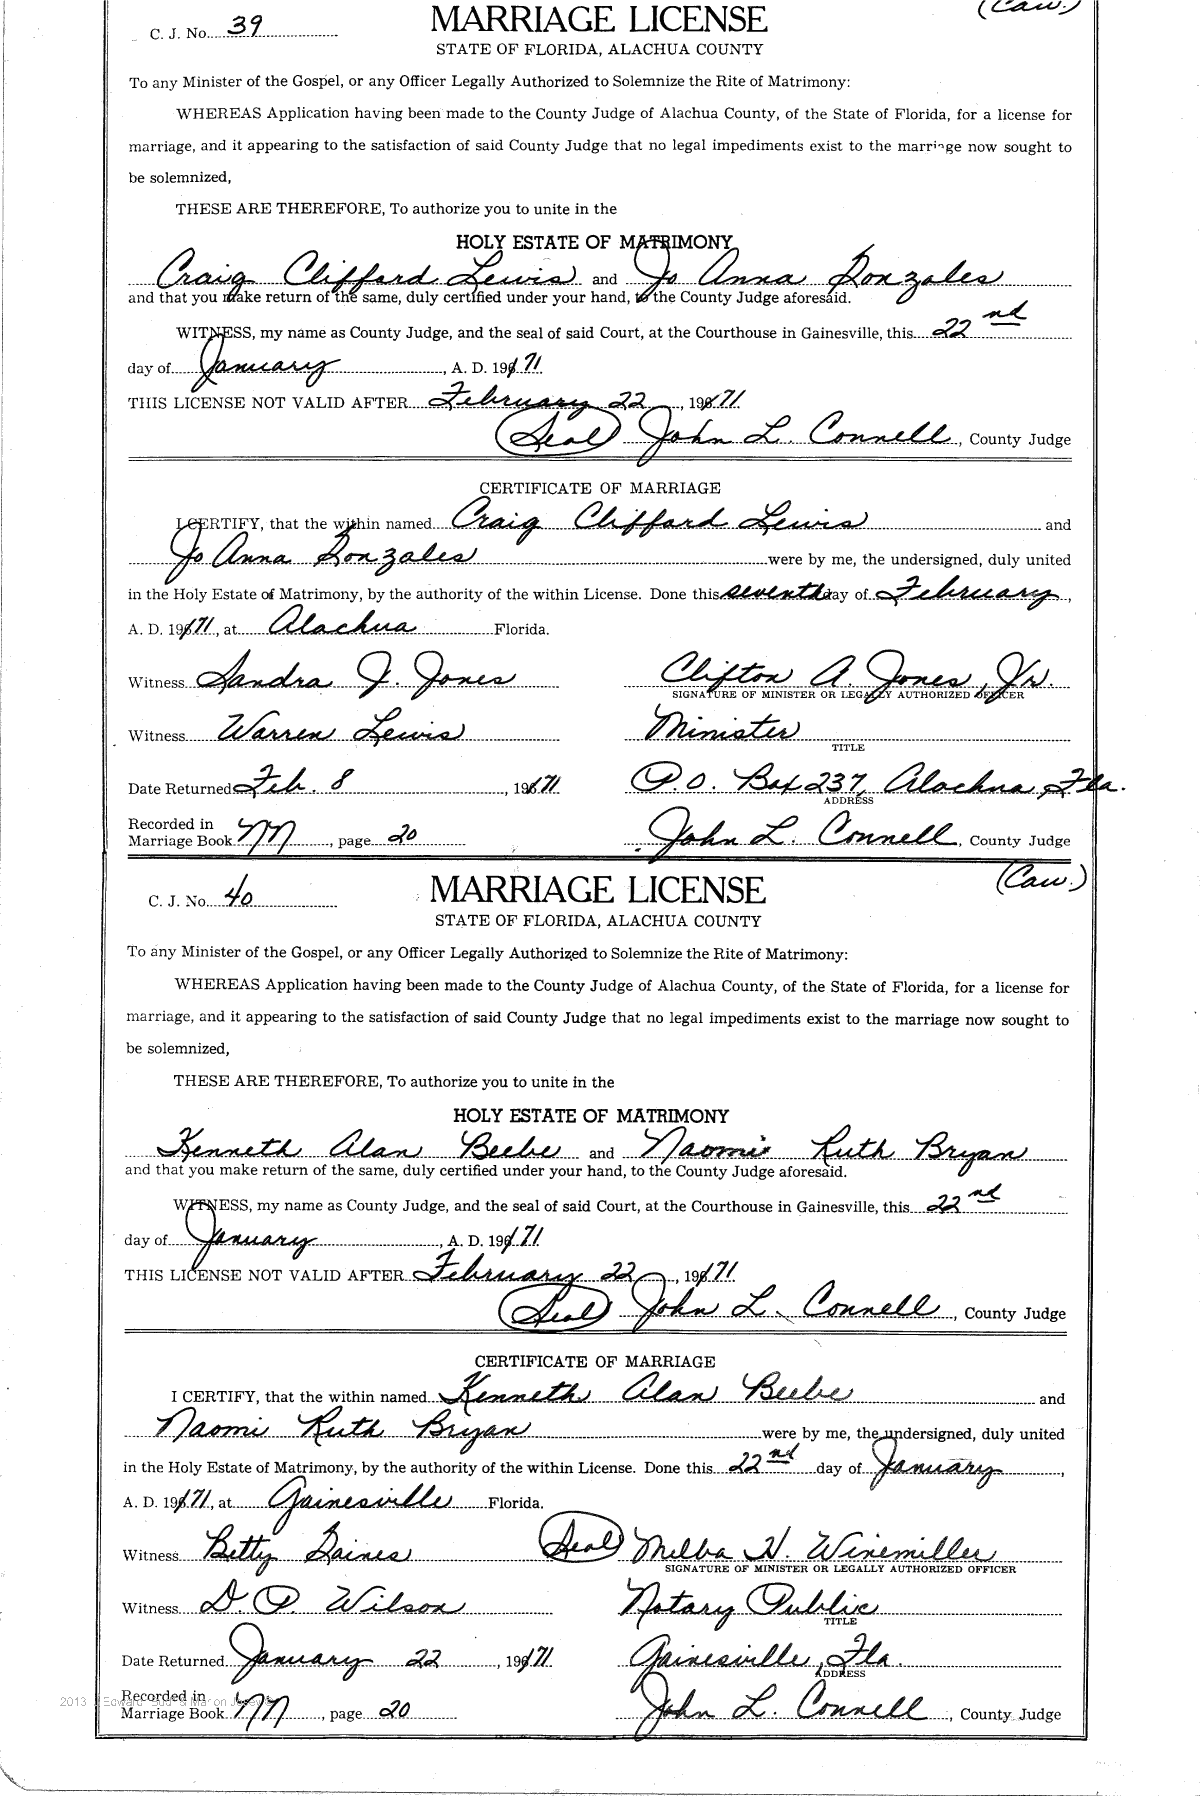 (Caw.)
C. J. No. 39
MARRIAGE LICENSE
STATE OF FLORIDA, ALACHUA COUNTY
To any Minister of the Gospel, or any Officer Legally Authorized to Solemnize the Rite of Matrimony:
WHEREAS Application having been made to the County Judge of Alachua County, of the State of Florida, for a license for
marriage, and it appearing to the satisfaction of said County Judge that no legal impediments exist to the marriage now sought to
be solemnized,
THESE ARE THEREFORE, To authorize you to unite in the
HOLY ESTATE OF MATRIMONY
Craig Clifford Lewis and Jo Anna Gonzales
and that you make return of the same, duly certified under your hand, to the County Judge aforesaid.
WITNESS, my name as County Judge, and the seal of said Court, at the Courthouse in Gainesville, this 22nd
day of January, A. D. 1971
THIS LICENSE NOT VALID AFTER February 22, 1971
(Seal) John L. Connell, County Judge
CERTIFICATE OF MARRIAGE
I CERTIFY, that the within named Craig Clifford Lewis and
Jo Anna Gonzales were by me, the undersigned, duly united
in the Holy Estate of Matrimony, by the authority of the within License. Done this seventh day of February,
A. D. 1971, at Alachua Florida.
Witness Sandra J. Jones Clifton A. Jones, Jr.
SIGNATURE OF MINISTER OR LEGALLY AUTHORIZED OFFICER
Witness Warren Lewis Minister
TITLE
Date Returned Feb. 8, 1971 P.O. Box 237, Alachua, Fla.
ADDRESS
Recorded in
Marriage Book MM, page 20 John L. Connell, County Judge
(Caw.)
C. J. No. 40
MARRIAGE LICENSE
STATE OF FLORIDA, ALACHUA COUNTY
To any Minister of the Gospel, or any Officer Legally Authorized to Solemnize the Rite of Matrimony:
WHEREAS Application having been made to the County Judge of Alachua County, of the State of Florida, for a license for
marriage, and it appearing to the satisfaction of said County Judge that no legal impediments exist to the marriage now sought to
be solemnized,
THESE ARE THEREFORE, To authorize you to unite in the
HOLY ESTATE OF MATRIMONY
Kenneth Alan Beebe and Naomi Ruth Bryan
and that you make return of the same, duly certified under your hand, to the County Judge aforesaid.
WITNESS, my name as County Judge, and the seal of said Court, at the Courthouse in Gainesville, this 22nd
day of January, A. D. 1971
THIS LICENSE NOT VALID AFTER February 22, 1971
(Seal) John L. Connell, County Judge
CERTIFICATE OF MARRIAGE
I CERTIFY, that the within named Kenneth Alan Beebe and
Naomi Ruth Bryan were by me, the undersigned, duly united
in the Holy Estate of Matrimony, by the authority of the within License. Done this 22nd day of January,
A. D. 1971, at Gainesville Florida.
Witness Betty Gaines (Seal) Melba H. Winemiller
SIGNATURE OF MINISTER OR LEGALLY AUTHORIZED OFFICER
Witness D. P. Wilson Notary Public
TITLE
Date Returned January 22, 1971 Gainesville, Fla.
ADDRESS
2013 Edward
Recorded in
Marriage Book MM, page 20 John L. Connell, County Judge